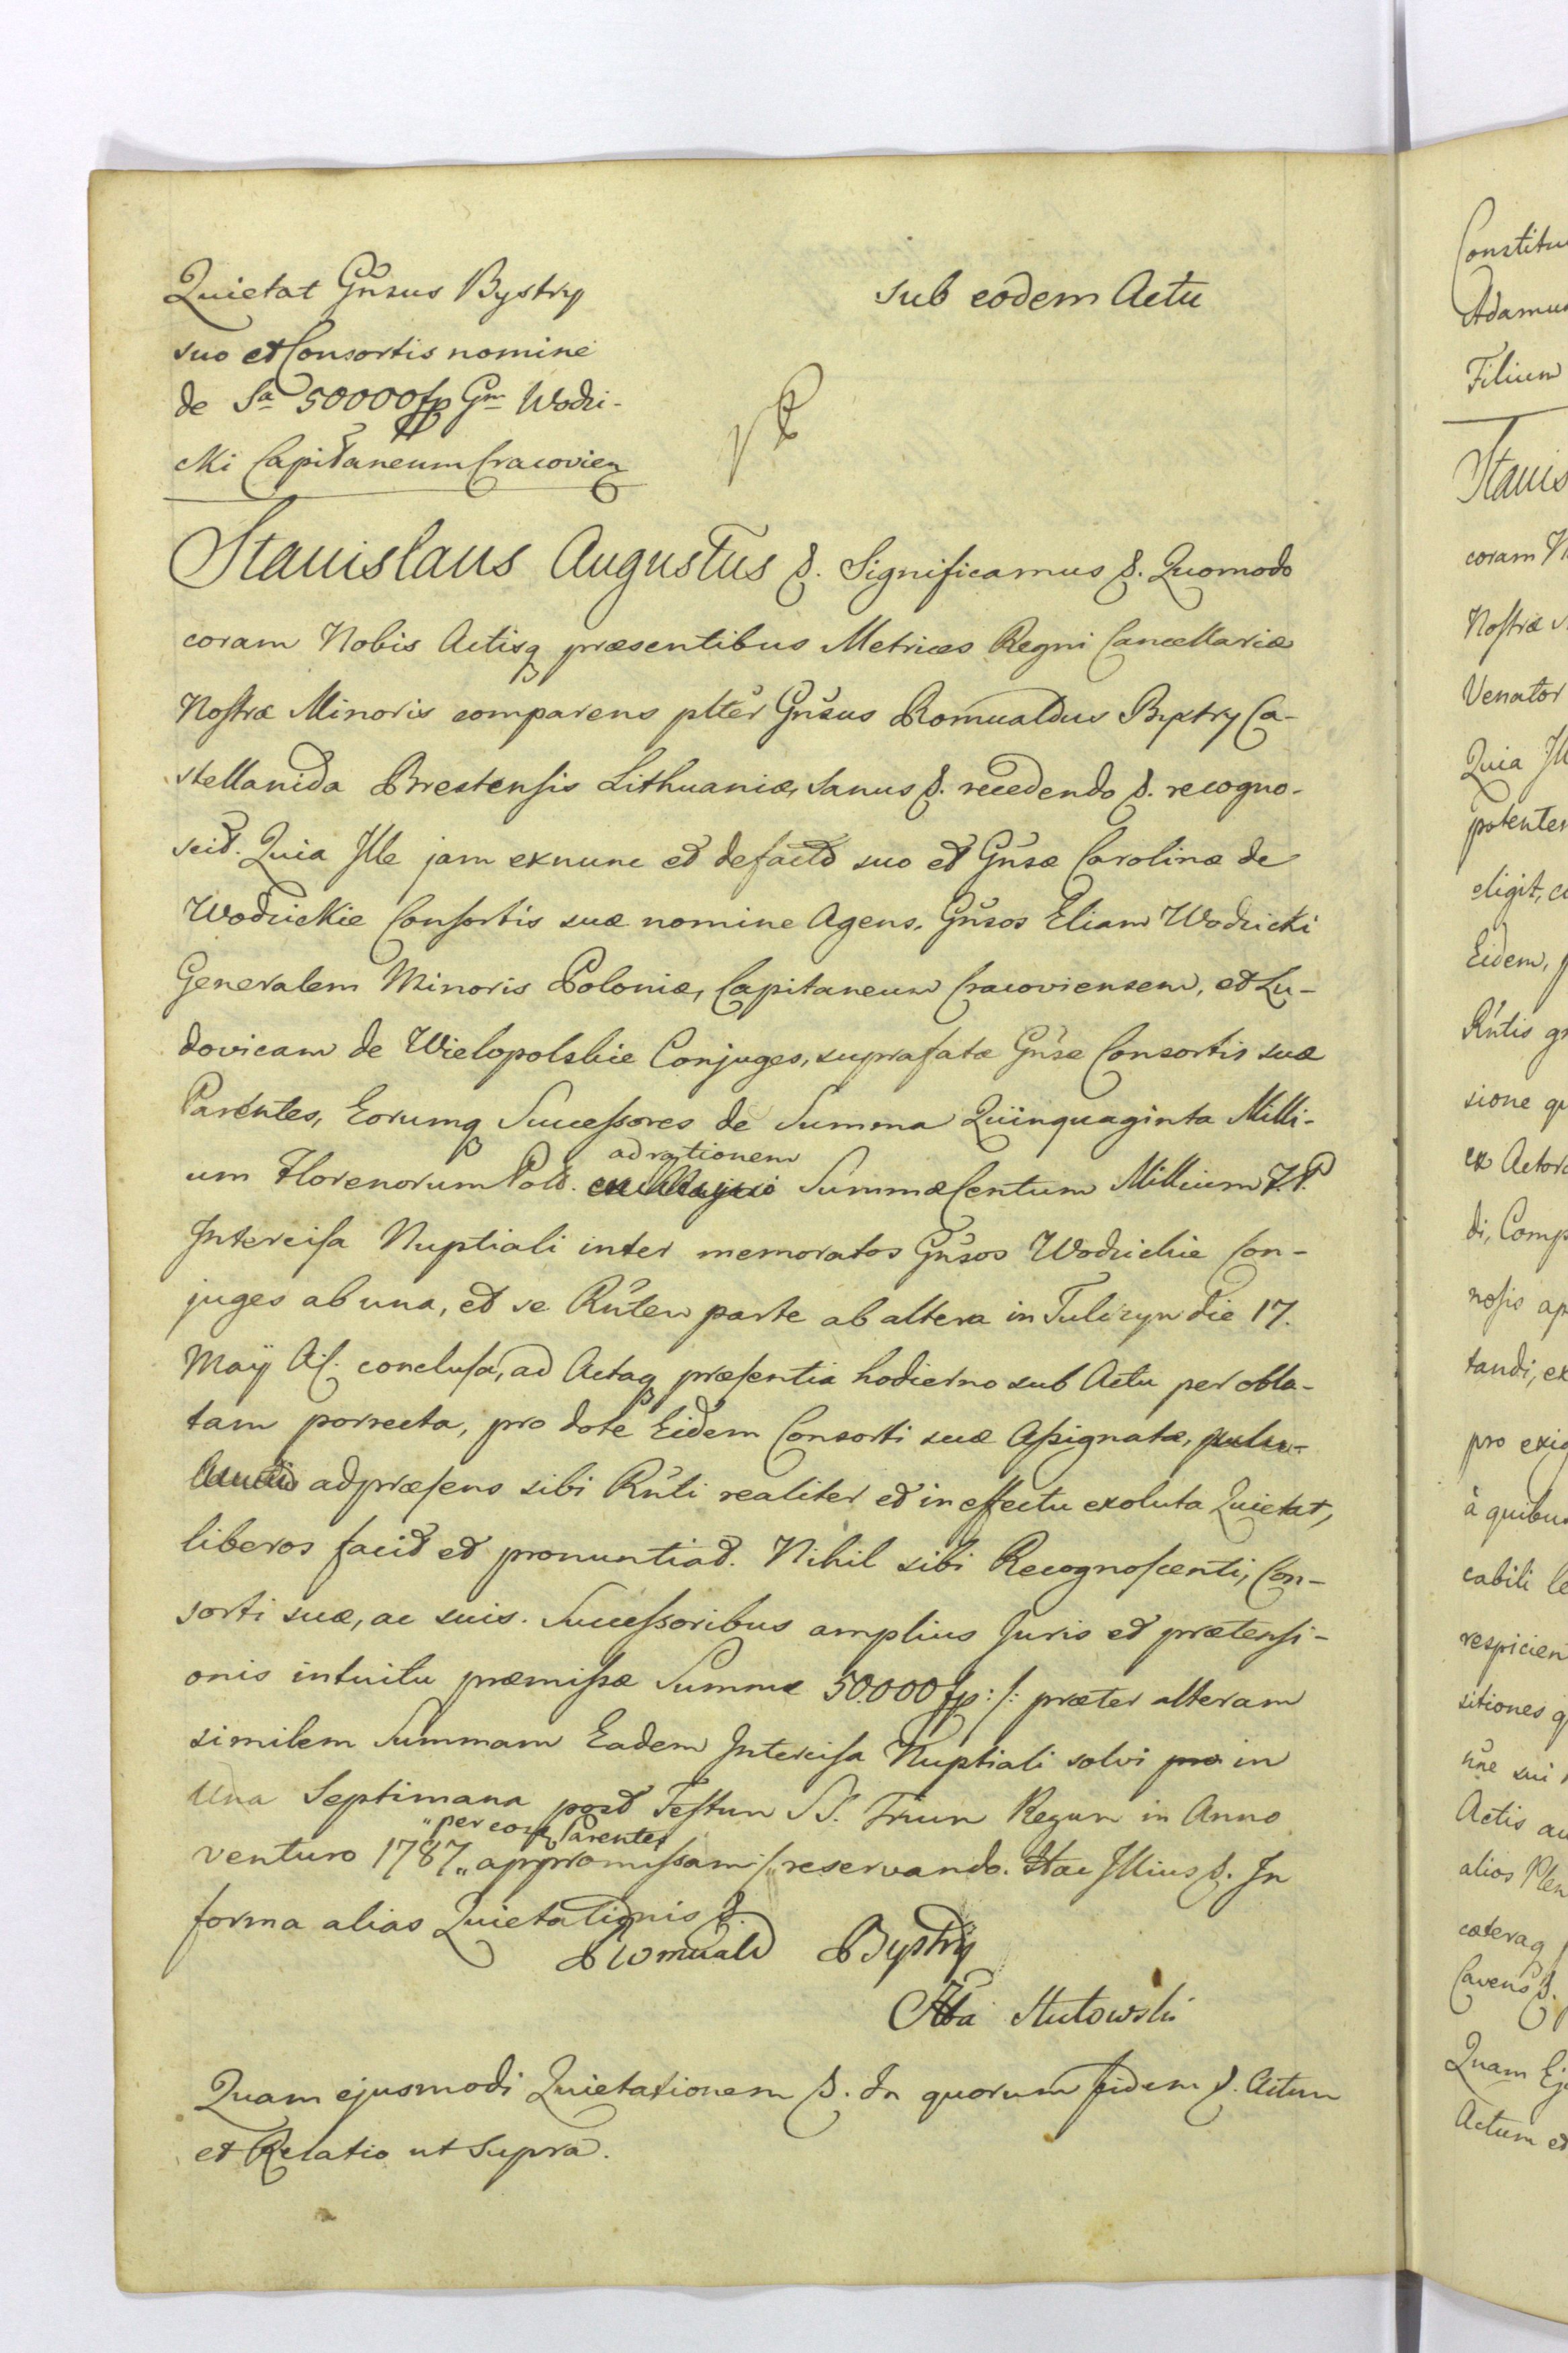 Quietat Gñsus Bystry
suo et Consortis nomine
de Sa 50000 fp Gm Wodzi-
cki Capitaneum Cracovien
sub eodem Actu
Stanislaus Augustus &. Significamus &. Quomodo
coram Nobis Actisq præsentibus Metrices Regni Cancellariæ
Nostræ Minoris comparens pltēr Gñsus Romualdus Bystry Ca-
stellanida Brestensis Lithuaniæ, sanus &. recedendo &. recogno-
scit. Quia Ille jam exnunc et defacto suo et Gñsæ Carolinæ de
Wodzickie Consortis suæ nomine Agens, Gñsos Eliam Wodzicki
Generalem Minoris Poloniæ, Capitaneum Cracoviensem, et Lu-
dovicam de Wielopolskie Conjuges, suprafatæ Gñsæ Consortis suæ
Parentes, Eorumq Successores de Summa Quinquaginta Milli-
um Florenorum Pol. ad rationem Summæ Centum Millium F.P.
Intercisa Nuptiali inter memoratos Gñsos Wodzickie Con-
juges ab una, et se Rñtem parte ab altera in Tulczyn die 17.
Maÿ A. conclusa, ad Actaq præsentia hodierno sub Actu per obla-
tam porrecta, pro dote Eidem Consorti suæ Assignatæ,
ad præsens sibi Rñti realiter et in effectu exoluta Quietat,
liberos facit et pronuntiat. Nihil sibi Recognoscenti, Con-
sorti suæ, ac suis. Successoribus amplius Juris et prætensi-
onis intuitu præmissæ Summæ 50.000 fp: /: præter alteram
similem Summam Eadem Intercisa Nuptiali solvi pro in
Una Septimana post Festum SS. Trium Regum in Anno
venturo 1787 „ per eosq Parentes „ appromissam :/ reservando. Hac Illius &. In
forma alias Quietationis &.
Romuald Bystrÿ
Quam ejusmodi Quietationem &. In quorum fidem &. Actum
et Relatio ut Supra.
Constitu
Adamus
Filium
Stanis
coram N
Nostræ
Venator
Quia Ill
potentem
eligit, co
Eidem, p
Rñtis g
sione q
ex Actor
di, Comp
nosis ap
tandi, ex
pro exig
à quibus
cabili le
respicien
sitiones q
sui
Actis au
alios Plen
cæteraq
Cavens &.
Quam Ej
Actum et